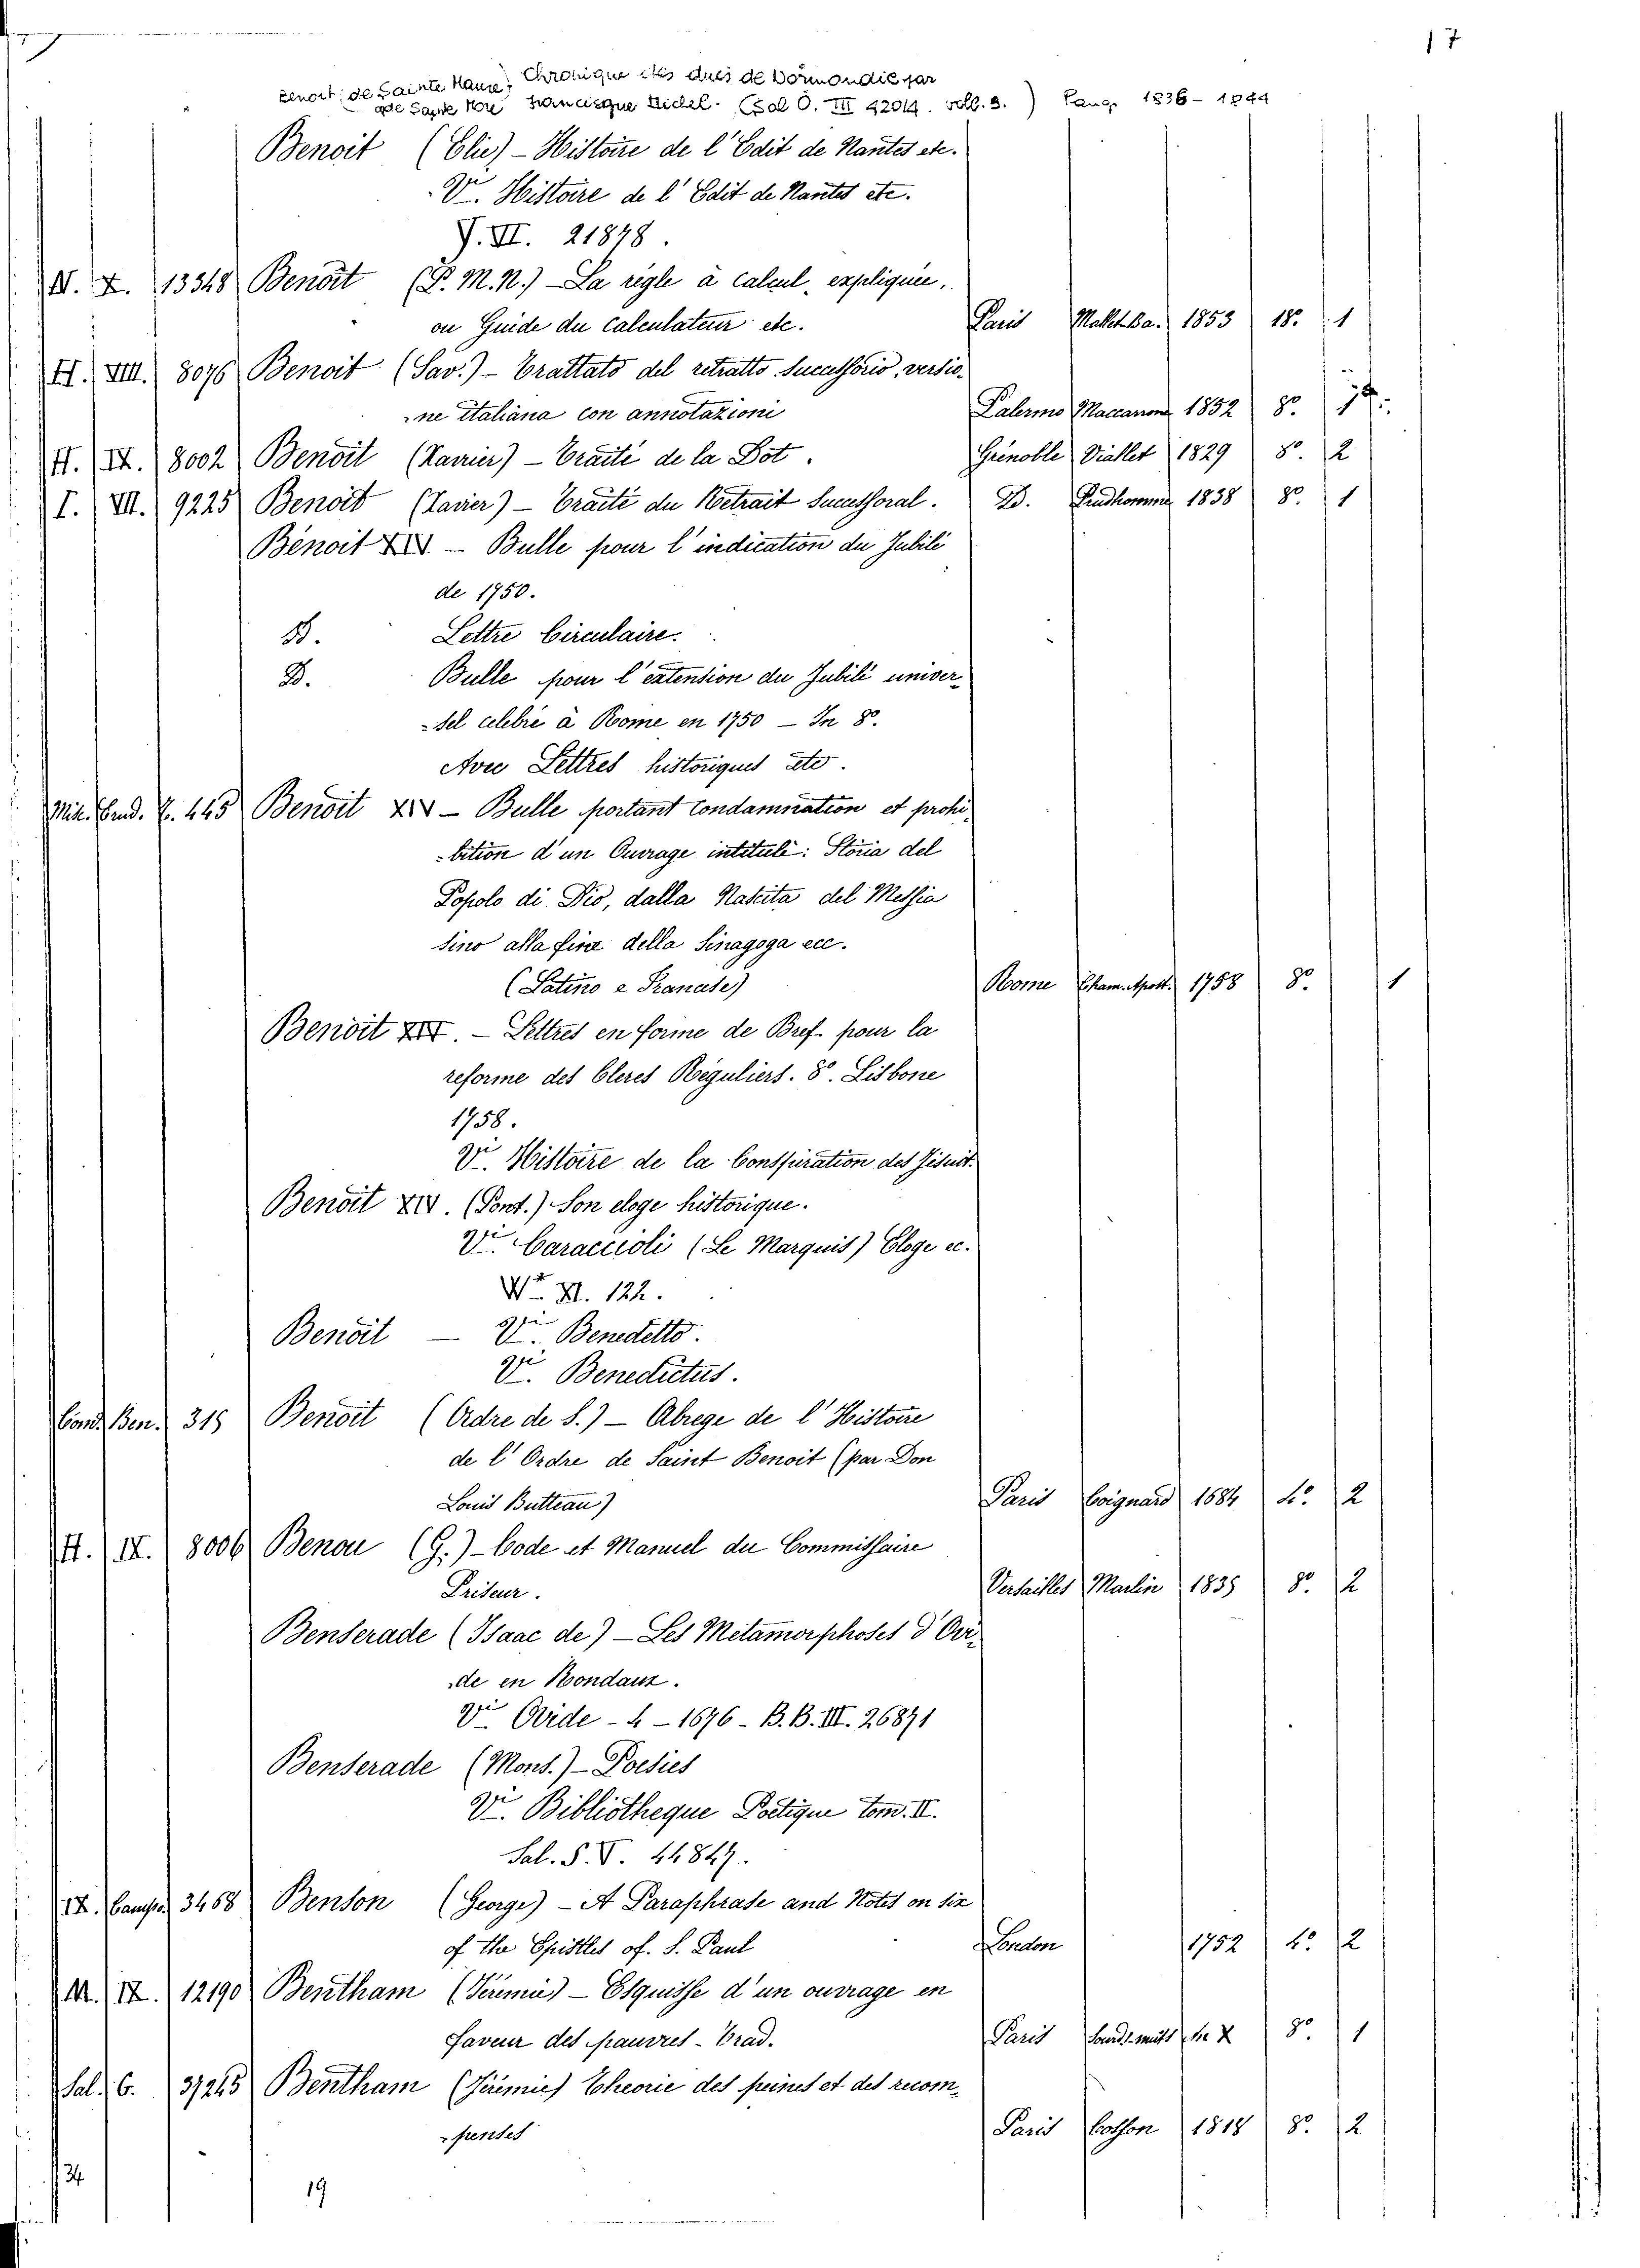 17
Benoit de Sainte Maure, Chronique des ducs de Normandie par
de Sainte More Francisque Michel. (Sal O. III 42014. voll. 3.) Parigi 1836 - 1844
Benoit (Elie) - Histoire de l'Edit de Nantes etc.
V. Histoire de l'Edit de Nantes etc.
Y. VI. 21878.
N. X. 13348 Benoit (P. M. N.) - La règle à calcul, expliquée,
ou Guide du calculateur etc. Paris Mallet Ba. 1853 18º. 1
H. VIII. 8076 Benoit (Sav.) - Trattato del retratto successorio, versio-
-ne italiana con annotazioni Palermo Maccarrone 1852 8º.
H. IX. 8002 Benoit (Xavier) - Traité de la Dot. Grenoble Viallet 1829 8º. 2
I. VII. 9225 Benoit (Xavier) - Traité du Retrait Successoral. D. Prudhomme 1838 8º. 1
Benoit XIV. - Bulle pour l'indication du Jubilé
de 1750.
D. Lettre Circulaire.
D. Bulle pour l'extension du Jubilé univer-
-sel celebré à Rome en 1750 - In 8º.
Avec Lettres historiques etc.
Mis. Erud. T. 445 Benoit XIV - Bulle portant condamnation et prohi-
-bition d'un Ouvrage intitulé: Storia del
Popolo di Dio, dalla Nascita del Messia
sino alla fine della Sinagoga ecc.
(Latino e Francese) Rome Cham. Apost. 1758 8º. 1
Benoit XIV. - Lettres en forme de Bref pour la
reforme des Clercs Réguliers. 8º. Lisbone
1758.
V. Histoire de la Conspiration des Jésuit.
Benoit XIV. (Pont.) Son eloge historique.
V. Caraccioli (Le Marquis) Eloge ec.
XI. 122.
Benoit - V. Benedetto.
V. Benedictus.
Cond. Ben. 315 Benoit (Ordre de S.) - Abrege de l'Histoire
de l'Ordre de Saint Benoit (par Don
Louis Butteau) Paris Coignard 1684 4º. 2
H. IX. 8006 Benou (G.) - Code et Manuel du Commissaire
Priseur. Versailles Marlin 1835 8º. 2
Benserade (Isaac de) - Les Metamorphoses d'Ovi-
-de en Rondaux.
V. Ovide - 4 - 1676 - B. B. III. 26871
Benserade (Mons.) - Poesies
V. Bibliotheque Poetique tom. II.
Sal. S. V. 44847.
IX. Campo. 3468 Benson (George) - A Paraphrase and Notes on six
of the Epistles of. S. Paul London 1752 4º. 2
M. IX. 12190 Bentham (Jérémie) - Esquisse d'un ouvrage en
faveur des pauvres - Trad. Paris Sourds-muts 8º. 1
Sal. 6. 37245 Bentham (Jérémie) Theorie des peines et des recom-
-penses Paris Bosson 1818 8º. 2
34
19